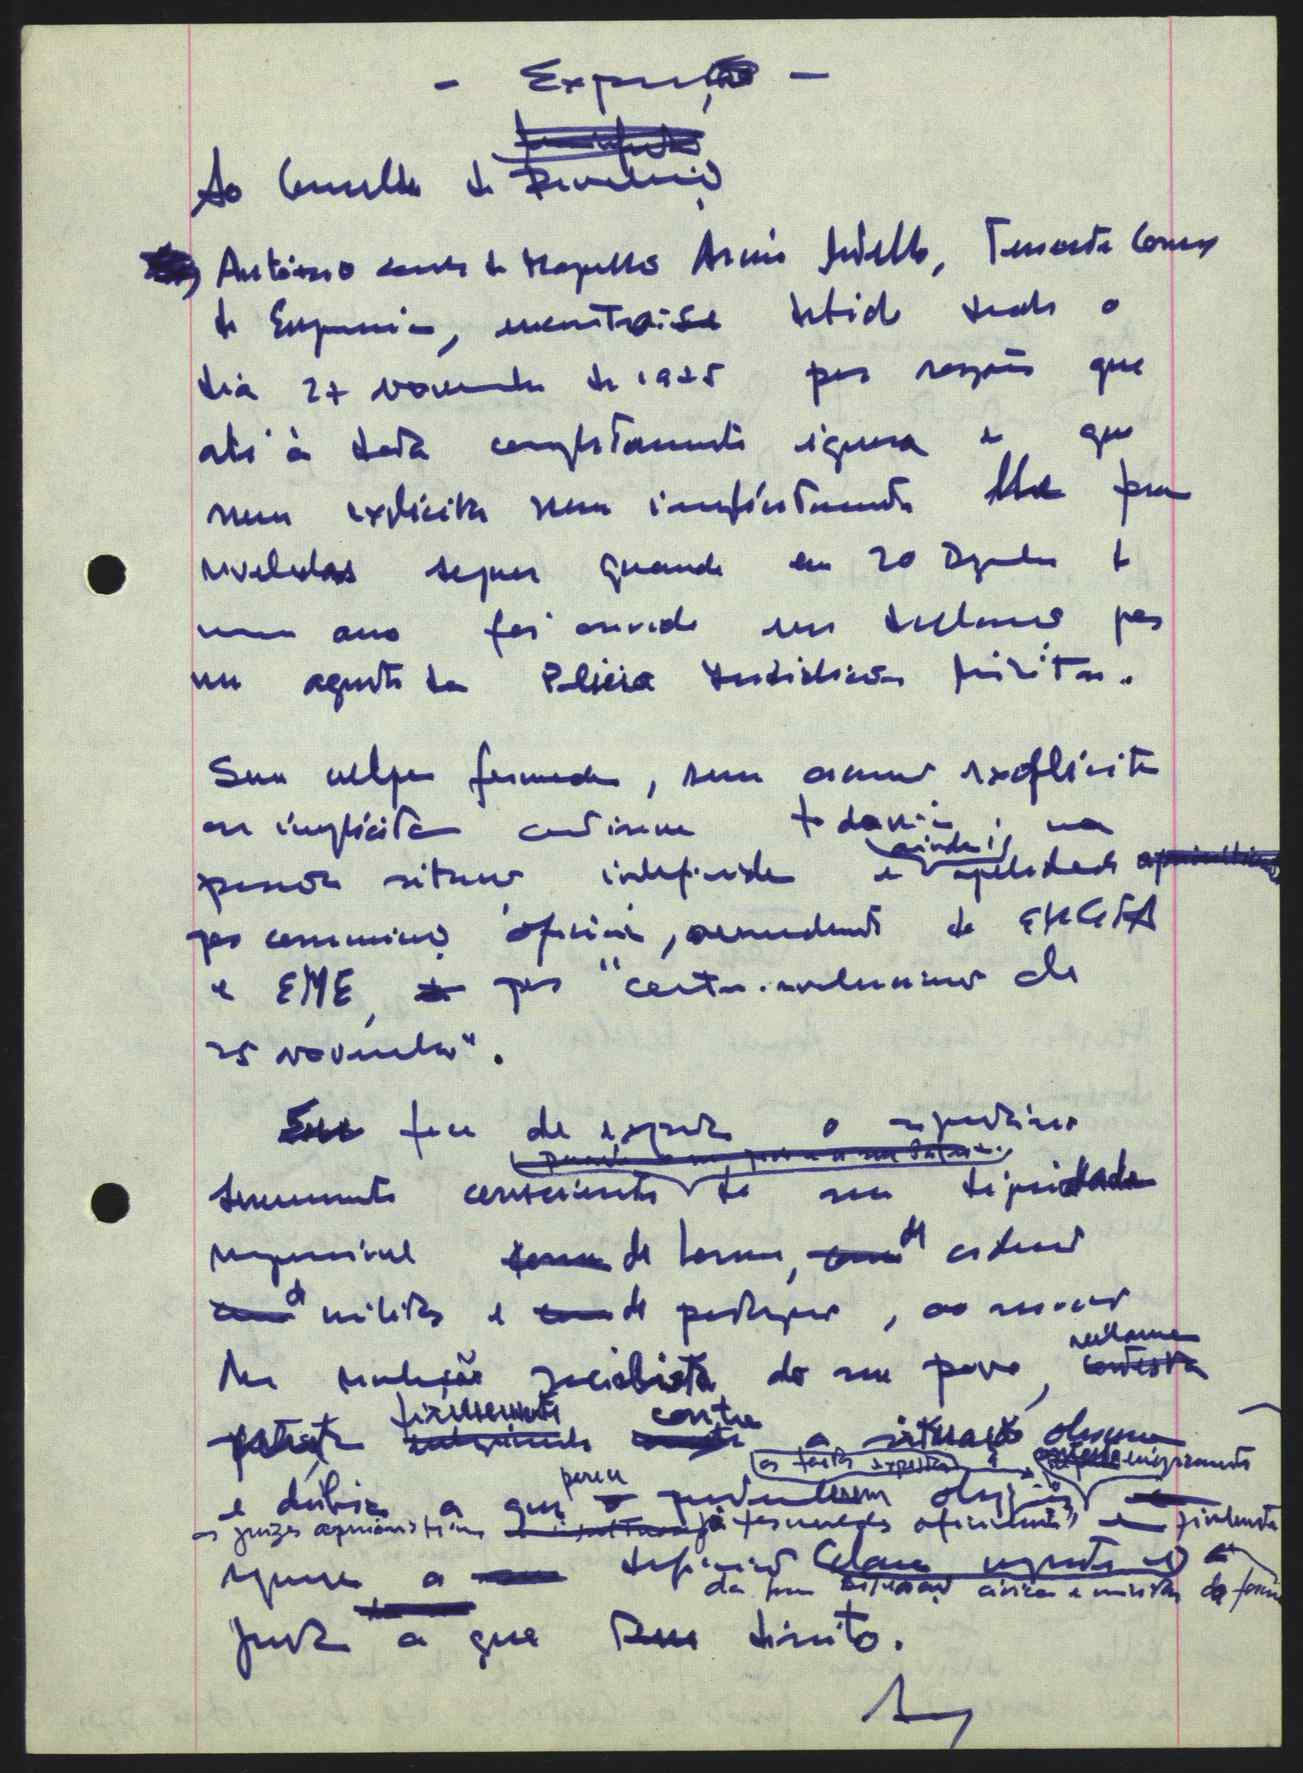 - Exposição -
Ao Conselho da Revolução
António Carlos de Magalhães Arnão Metello, Tenente Coronel
de Engenharia, encontra-se detido desde o
dia 27 Novembro de 1975 por razões que
até à data completamente ignora e que
nem explícita nem implicitamente lhe foram
reveladas sequer quando em 20 Dezembro do
mesmo ano foi ouvido em declarações por
um agente da Polícia Judiciária Militar.
Sem culpa formada, sem acusação explícita
ou implícita continua todavia, na
penosa situação indefinida e ainda
por comunicação oficial, do EMGFA
e EME, por "certo envolvimento do
25 Novembro".
Em face do exposto o
serenamente consciente da sua dignidade
responsável de homem, de cidadão
de militar e de português, ao serviço
da revolução socialista do seu povo, reclama
firmemente contra a situação obscura
e dúbia a que porem os factos expostos
os juízes já formulados oficialmente
requer a definição
da sua situação cívica e militar de forma
justa a que tem direito.